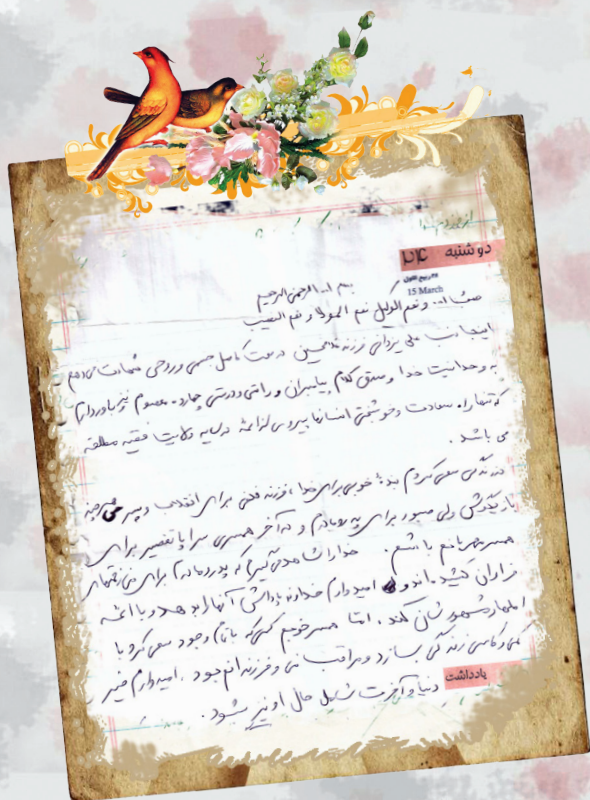 دوشنبه ۲۴
۲۸ ربیع الاول
15 March
بسم الله الرحمن الرحیم
حسبنا الله و نعم الوکیل نعم المولا و نعم النصیب
اینجانب علی یزدانی فرزند در صحت کامل جسمی و روحی شهادت می دهم
به وحدانیت خدا و صدق کلام پیامبران و راستی و درستی چهارده معصوم و نیز باور دارم
که تنها راه سعادت و خوشبختی انسانها پیروی از ائمه در سایه ولایت فقیه مطلقه
می باشد .
در زندگی سعی کردم بنده خوبی برای خدا ، فرزند فعلی برای انقلاب و پسر
بازیگوش ولی صبور برای پدر و مادرم و در آخر همسری سراپا تقصیر برای
همسر مهربانم باشم . خدا را شاهد می گیرم که پدر و مادرم برای من زحمتهای
فراوان کشیده اند و امیدوارم خداوند پاداش آنها را با ائمه
اطهار محشورشان کند ، امّا همسر خوبم کسی که با تمام وجود سعی کرد با
کمی و کاستی زندگی بسازد و مراقب من و فرزندانم بود ، امیدوارم خیر
دنیا و آخرت شامل حال او نیز بشود .
یادداشت